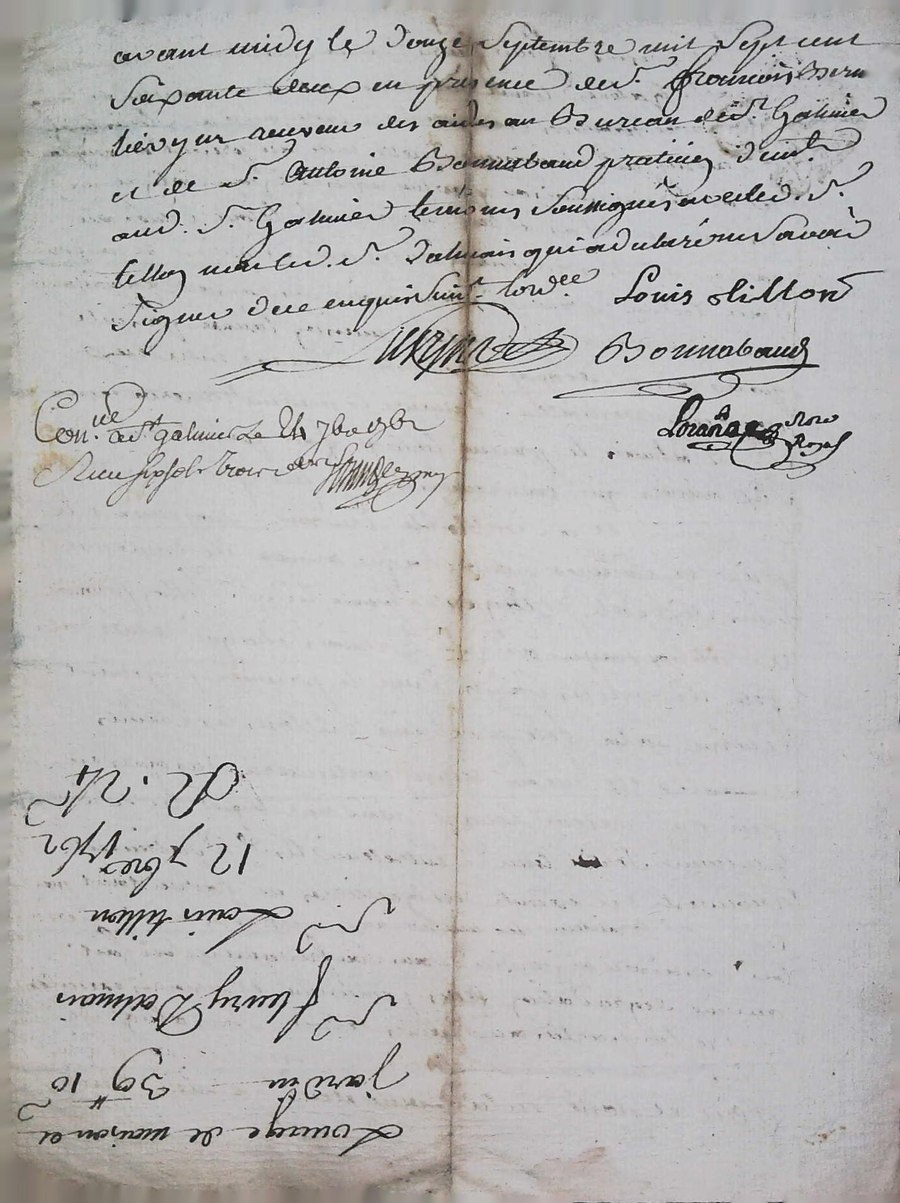 avant midy le douze Septembre mil Sept cent
Soixante deux en presence de Sr. françois
receveur des aides au Bureau de St. Galmier
et de Sr. Antoine Bonnabaud praticien
aud. St. Galmier temoins Soussignés avec led. Sr.
tillon non led. Sr. Dalmais qui a declaré ne Savoir
Signer de ce enquis
Louis tillon
Bonnabaud
Nore
Royal
Con.lle a St galmier Le 24 7bre 1762
Reçu
Louage de maison et
jardin 39# 10
Sr. fleury Dalmais
Sr. Louis tillon
12 7bre 1762
R. 24